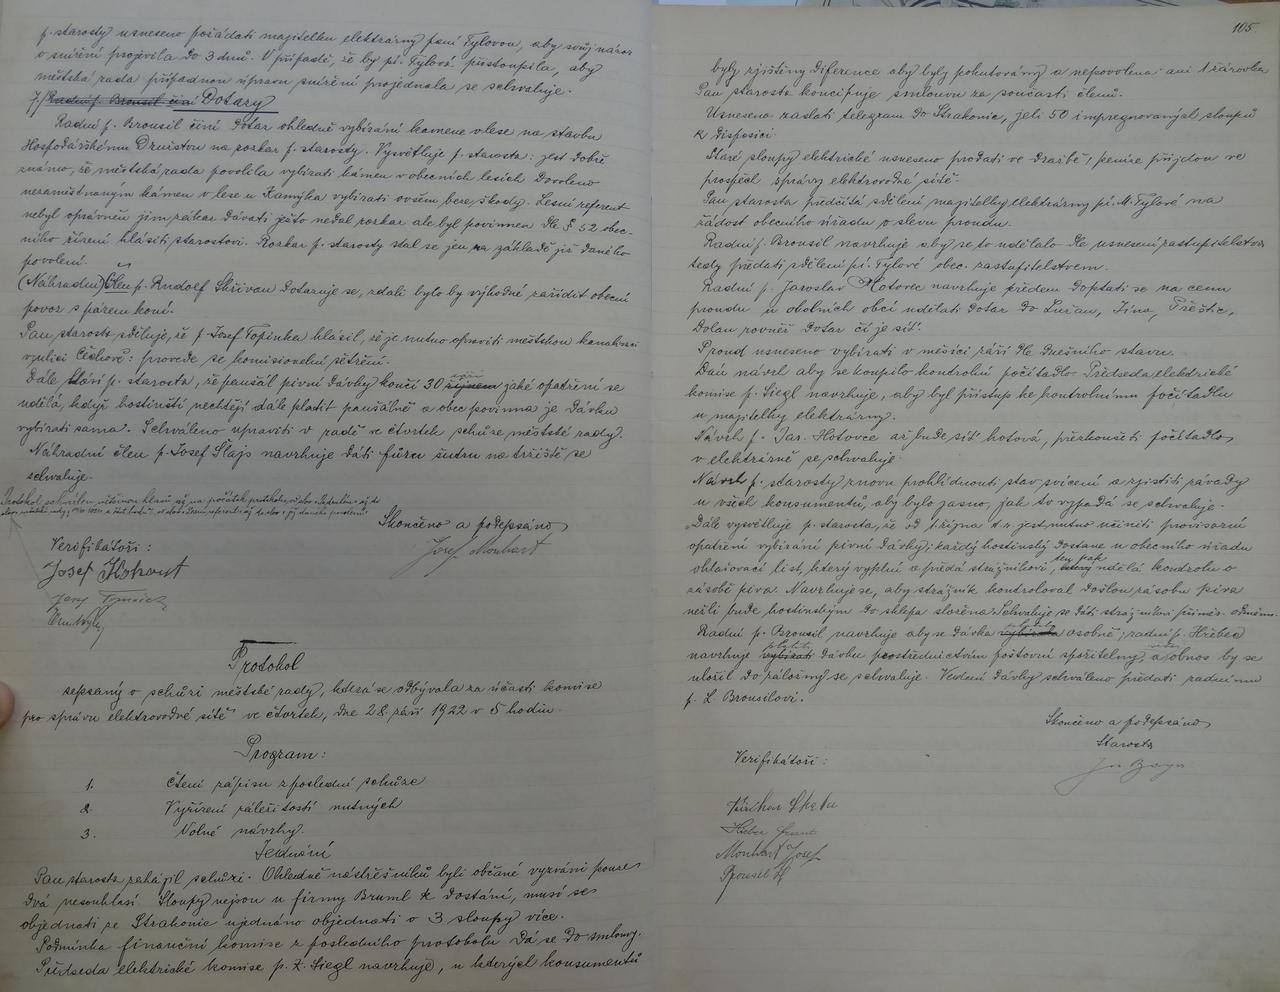 p. starosty usneseno požádati majitelku elektrárny paní Tylovou, aby svůj názor
o snížení projevila do 3 dnů. V případě, že by pí. Tylová přistoupila, aby
městská rada případnou úpravu snížení projednala se schvaluje.
7./ Radní p. Brousil činí Dotazy
Radní p. Brousil činí dotaz ohledně vybírání kamene v lese na stavbu
Hospodářskému Družstvu na rozkaz p. starosty. Vysvětluje p. starosta: jest dobře
známo, že městská rada povolila vybírati kámen v obecních lesích. Dovoleno
nezaměstnaným kámen v lese u Kamýka vybírati ovšem beze škody. Lesní referent
nebyl oprávněn jim zákaz dávati ježto nedal rozkaz ale byl povinnen dle § 52 obec-
ního řízení hlásiti starostovi. Rozkaz p. starosty stal se jen na základě již daného
povolení.
(Náhradní) Člen p. Rudolf Skřivan dotazuje se, zdali bylo by výhodné zaříditi obecní
povoz s párem koní.
Pan starosta sděluje, že p. Josef Topinka hlásil, že je nutno opraviti městskou kanalisaci
v ulici Čechově: provede se komisionelní šetření.
Dále hlásí p. starosta, že paušál pivní dávky končí 30 září říjnem jaké opatření se
udělá, když hostinští nechtějí dále platit paušálně a obec povinna je dávku
vybírati sama. Schváleno upraviti v radě ve čtvrtek schůze městské rady.
Náhradní člen p. Josef Šlajs navrhuje dáti fůru šutru na tržiště se
schvaluje.
Protokol schválen většinou hlasů až na počátek protokolu, od slov
Skončeno a podepsáno
Josef Monhart
Verifikátoři:
Josef
Protokol
sepsaný o schůzi městské rady, která se odbývala za účasti komise
pro správu elektrovodné sítě ve čtvrtek, dne 28. září 1922 v 5 hodin.
Program:
1. Čtení zápisu z poslední schůze
2. Vyřízení záležitostí nutných
3. Volné návrhy.
Jednání
Pan starosta zahájil schůzi. Ohledně nástřešníků byli občané vyzváni pouze
dvá nesouhlasí. Sloupy nejsou u firmy Bruml k dostání, musí se
objednati ze Strakonic ujednáno objednati o 3 sloupy více.
Podmínka finanční komise z posledního protokolu dá se do smlouvy.
Předseda elektrické komise p. K. Siegl navrhuje, u kterých konsumentů
105.
byly zjištěny diference aby byly pokutovány a nepovolena ani 1 žárovka
Pan starosta koncipuje smlouvu za současti členů.
Usneseno zaslati telegram do Strakonic, jeli 50 impregnovaných sloupů
k disposici.
Staré sloupy elektrické usneseno prodati ve dražbě, peníze přijdou ve
prospěch správy elektrovodné sítě.
Pan starosta předčítá sdělení majitelky elektrárny pí. M. Tylové na
žádost obecního úřadu o slevu proudu.
Radní p. Brousil navrhuje aby se to udělalo dle usnesení zastupitelstva
tedy předati sdělení pí. Tylové obec. zastupitelstvem.
Radní p. Jaroslav Hotovec navrhuje předem doptati se na cenu
proudu u okolních obcí udělati dotaz do Lužan, Jína, Přeštic,
Dolan rovněž dotaz čí je síť.
Proud usneseno vybírati v měsíci září dle dnešního stavu.
Dán návrh aby se koupilo kontrolní počítadlo. Předseda elektrické
komise p. Siegl navrhuje, aby byl přístup ke kontrolnímu počítadlu
u majitelky elektrárny.
Návrh p. Jar. Hotovce až bude síť hotová, přezkoušeti počítadlo
v elektrárně se schvaluje.
Návrh p. starosty znovu prohlédnouti stav svícení a zjistiti závady
u všech konsumentů, aby bylo jasno, jak to vypadá se schvaluje.
Dále vysvětluje p. starosta, že od 1 října t.r. jest nutno učiniti provisorní
opatření vybírání pivní dávky; každý hostinský dostane u obecního úřadu
ohlašovací list, který vyplní a předá strážníkovi, ten pak udělá kontrolu o
zásobě piva. Navrhuje se, aby strážník kontroloval došlou zásobu piva
nežli bude hostinským do sklepa složena. Schvaluje se dáti strážníkovi přiměř. odměnu.
Radní p. Brousil navrhuje aby se dávka platila vybírala osobně; radní p. Hřebec
navrhuje platiti vybírati dávku prostřednictvím poštovní spořitelny, a obnos by se
uložil do záložny se schvaluje. Vedení dávky schváleno předati radnímu
p. L. Brousilovi.
Skončeno a podepsáno
Starosta
Verifikátoři:
Monhart Josef
Brousil